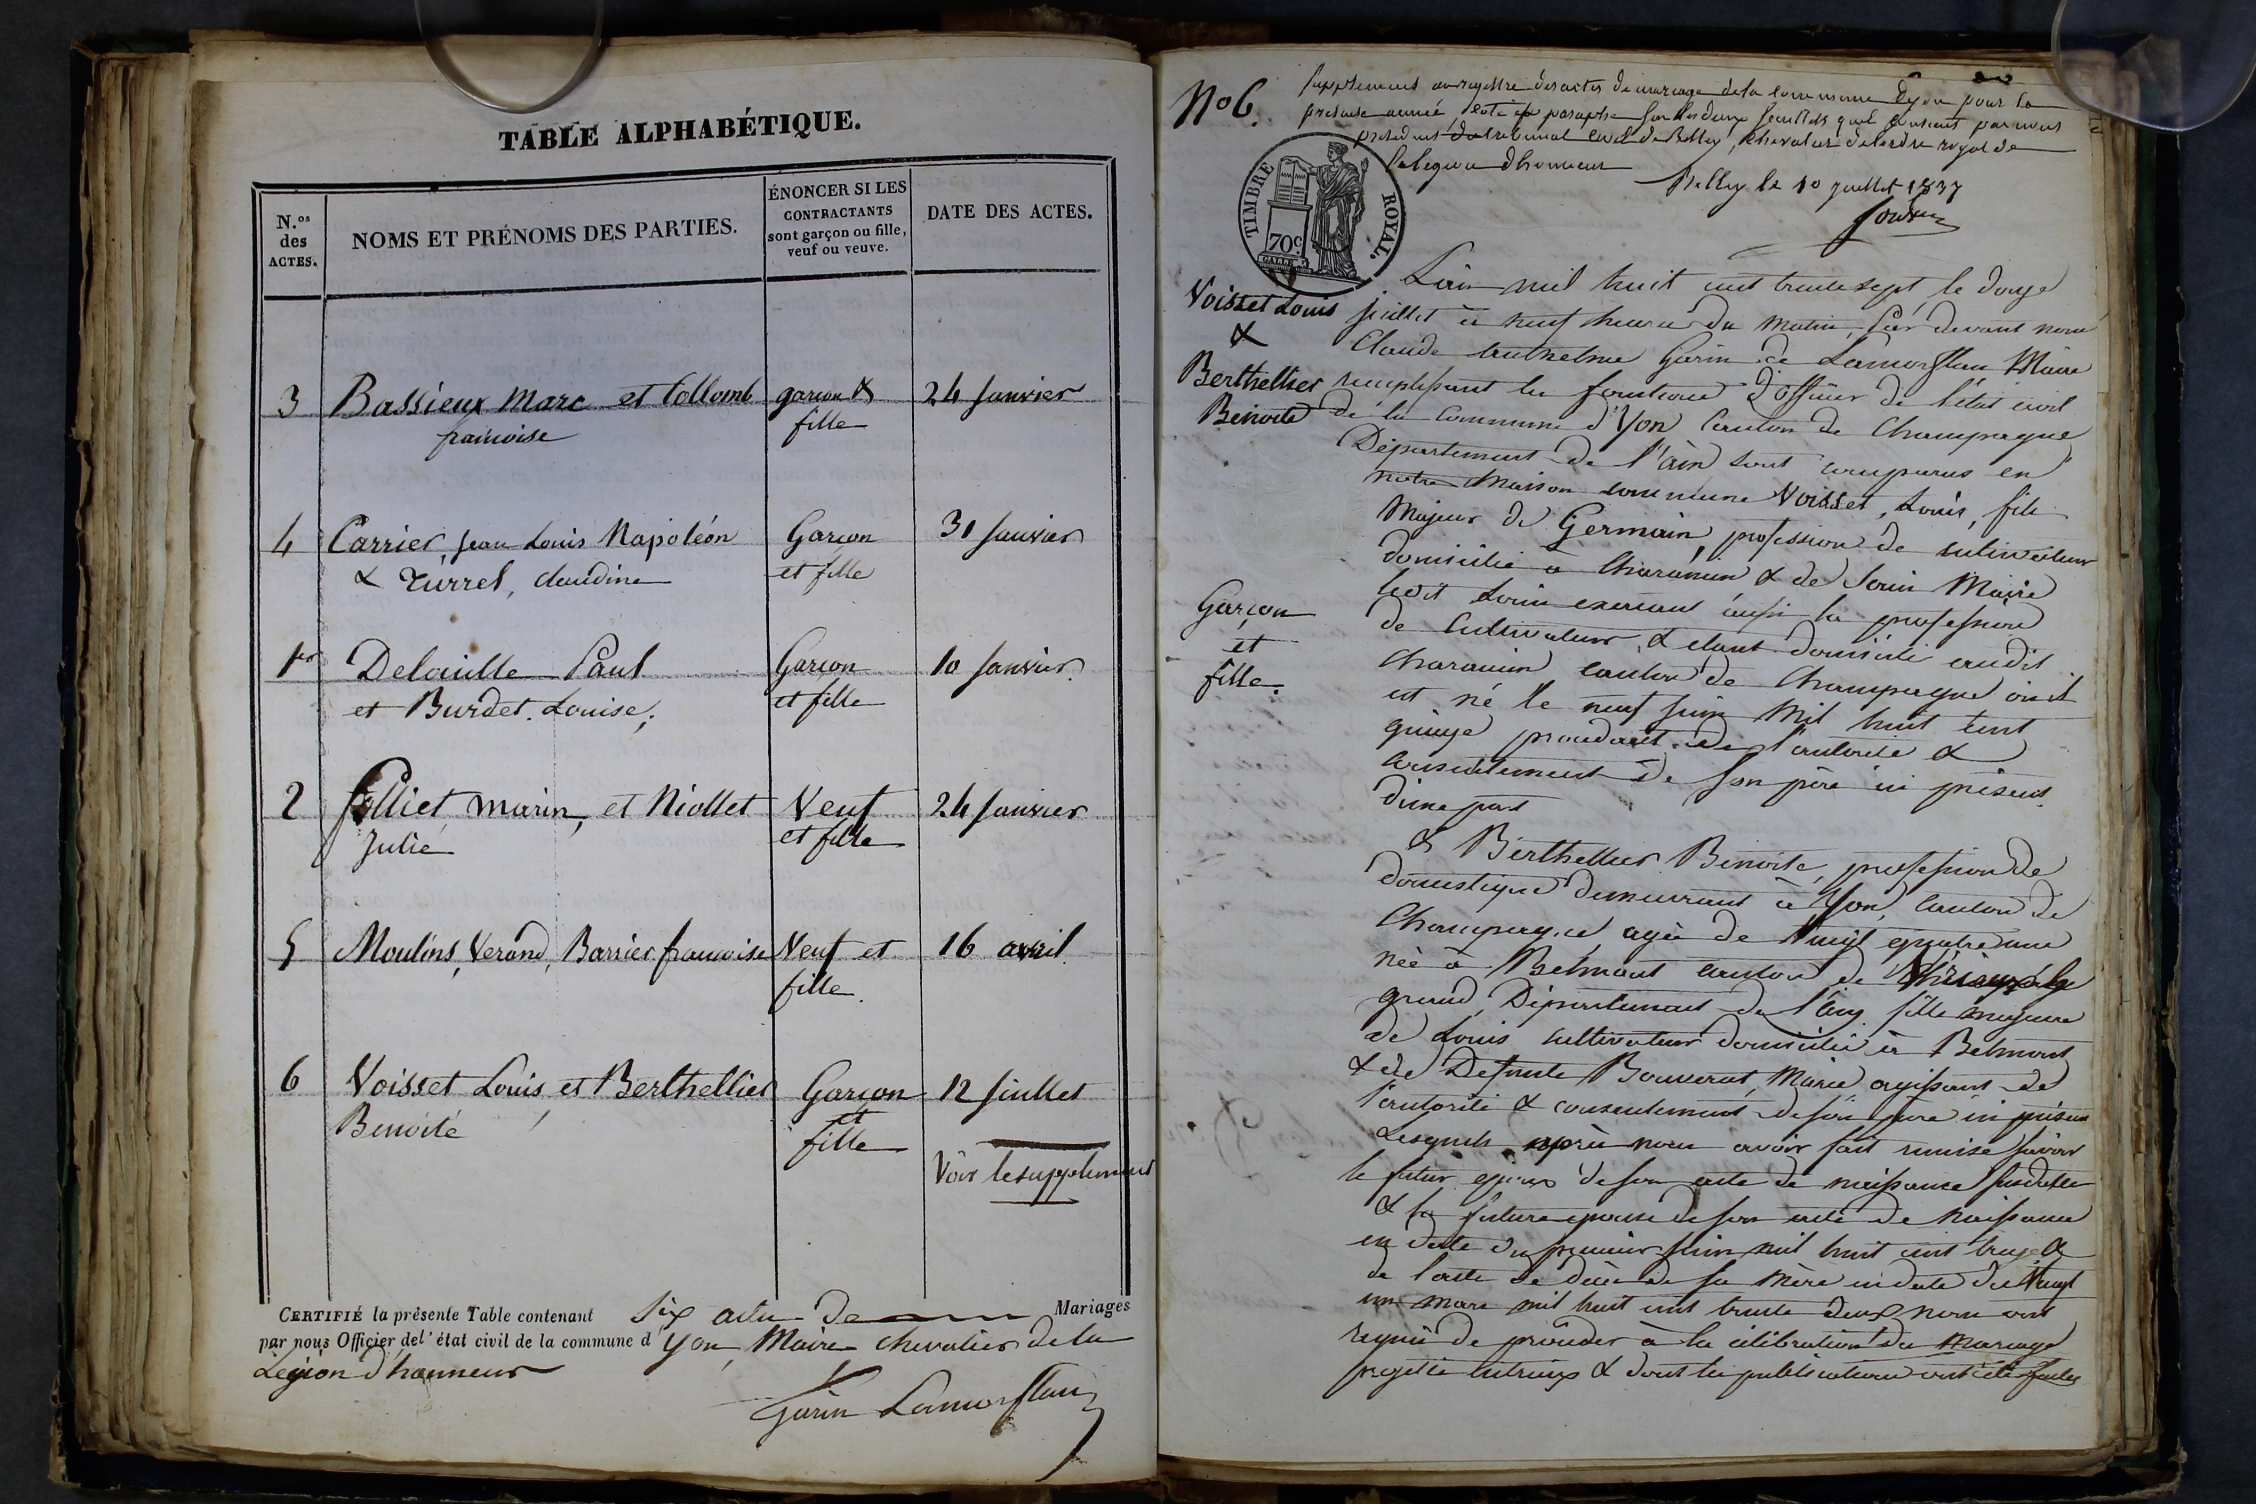 TABLE ALPHABÉTIQUE.
N.os des ACTES.
NOMS ET PRÉNOMS DES PARTIES.
ÉNONCER SI LES CONTRACTANTS sont garçon ou fille, veuf ou veuve.
DATE DES ACTES.
3 Bassieux Marc et Collomb garçon & 24 Janvier
francoise fille
4 Carrier, jean Louis Napoléon Garçon 31 Janvier
& Turrel, claudine et fille
1er Delouille Paul Garçon 10 Janvier.
et Burdet. Louise, et fille
2 Jolliet marin, et Niollet Veuf 24 Janvier
Julie et fille
5 Moulins, Verand, Barrier francoise Veuf et 16 avril
fille.
6 Voisset Louis, et Berthellier Garçon 12 Juillet
Benoite et
fille
Voir le supplement
CERTIFIÉ la présente Table contenant Six actes de Mariages
par nous Officier del'état civil de la commune d'yon, Maire chevalier de la
Légion d'honneur
Garin Lamorflan
No 6.
Supplement au registre des actes de mariage de la commune Dyon pour la
presente année, coté et paraphé sur les deux feuillets quil contient par nous
president du tribunal civil de Belley, chevalier de lordre royal de
la legion dhonneur
Belley le 10 juillet 1837
TIMBRE ROYAL.
70c
Voisset Louis
&
Berthellier
Benoite
Garçon
et
fille.
L'an mil huit cent trente sept le douze
juillet à neuf heures du matin, Par devant nous
Claude Anthelme Garin de Lamorflan Maire
remplissant les fonctions d'officier de l'état civil
de la commune d'Yon Canton de Champagne
Département de l'ain sont comparus en
notre Maison commune Voisset, Louis, fils
Majeur de Germain, profession de cultivateur
domicilié à Charancin & de Marie
ledit Louis exercant aussi la profession
de Cultivateur & etant domicilié audit
Charancin canton de Champagne où il
est né le neuf juin Mil huit Cent
quinze procedant de l'autorité &
consentement de son père ici présent.
d'une part
& Berthellier Benoite, profession de
domestique demeurant à Yon, Canton de
Champagne agée de vingt quatre ans
née à Belmont canton de Virieux le
grand, Département de l'ain fille majeure
de Louis cultivateur domicilié à Belmont
& de Defunte Bouverat, Marie agissant de
l'autorité & consentement de son père ici présent
Lesquels après nous avoir fait remise savoir
le futur epoux de son acte de naissance susdatté
& la future epouse de son acte de naissance
en date du premier juin mil huit cent treize &
de l'acte de décès de sa mère en date du vingt
un mars mil huit cent trente deux nous ont
requis de procéder à la célébration du mariage
projetté entr'eux & dont les publications ont été faites